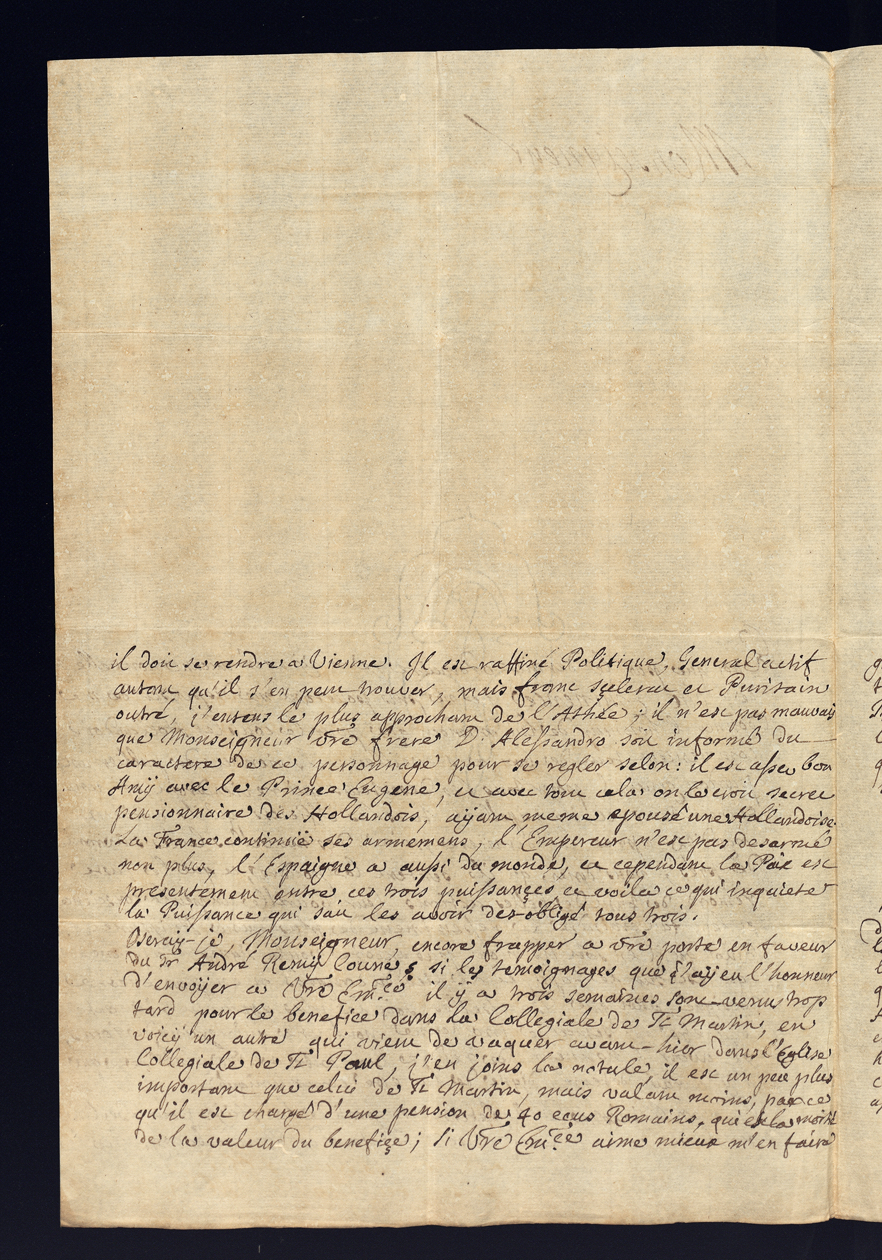 il doit se rendre a Vienne. Il est raffiné Politique, General actif
autant qu'il s'en peut trouver, mais franc scelerat et Puritain
outré, j'entens le plus approchant de l'Athée; il n'est pas mauvais
que Monseigneur vre frere D. Alessandro soit informé du
caractere de ce personnage pour se regler selon: il est assez bon
Amÿ avec le Prince Eugene, et avec tout cela on le croit secret
pensionnaire des Hollandois, aÿant meme epousé une Hollandoise.
La France continuë ses armemens, l'Empereur n'est pas desarmé
non plus, l'Espaigne a aussi du monde, et cependant la Paix est
presentement entre ces trois puissançes et voila ce qui inquiete
la Puissance qui sait les avoir des-obligé tous trois.
Oseraÿ-je, Monseigneur, encore frapper a vre porte en faveur
du Sr André Remÿ Coune, si les témoignages que j'aÿ eu l'honneur
d'envoÿer a Vre Em.ce il ÿ a trois semaines sont venu trop
tard pour le benefice dans la Collegiale de St Martin, en
voicÿ un autre qui vient de vaquer avant-hier dans l'Eglise
Collegiale de St Paul, j'en joins la notule, il est un peu plus
important que celui de St Martin, mais valant moins, parce
qu'il est chargé d'une pension de 40 ecus Romains, qui est la moitié
de la valeur du benefiçe; si Vre Em.ce aime mieux m'en faire